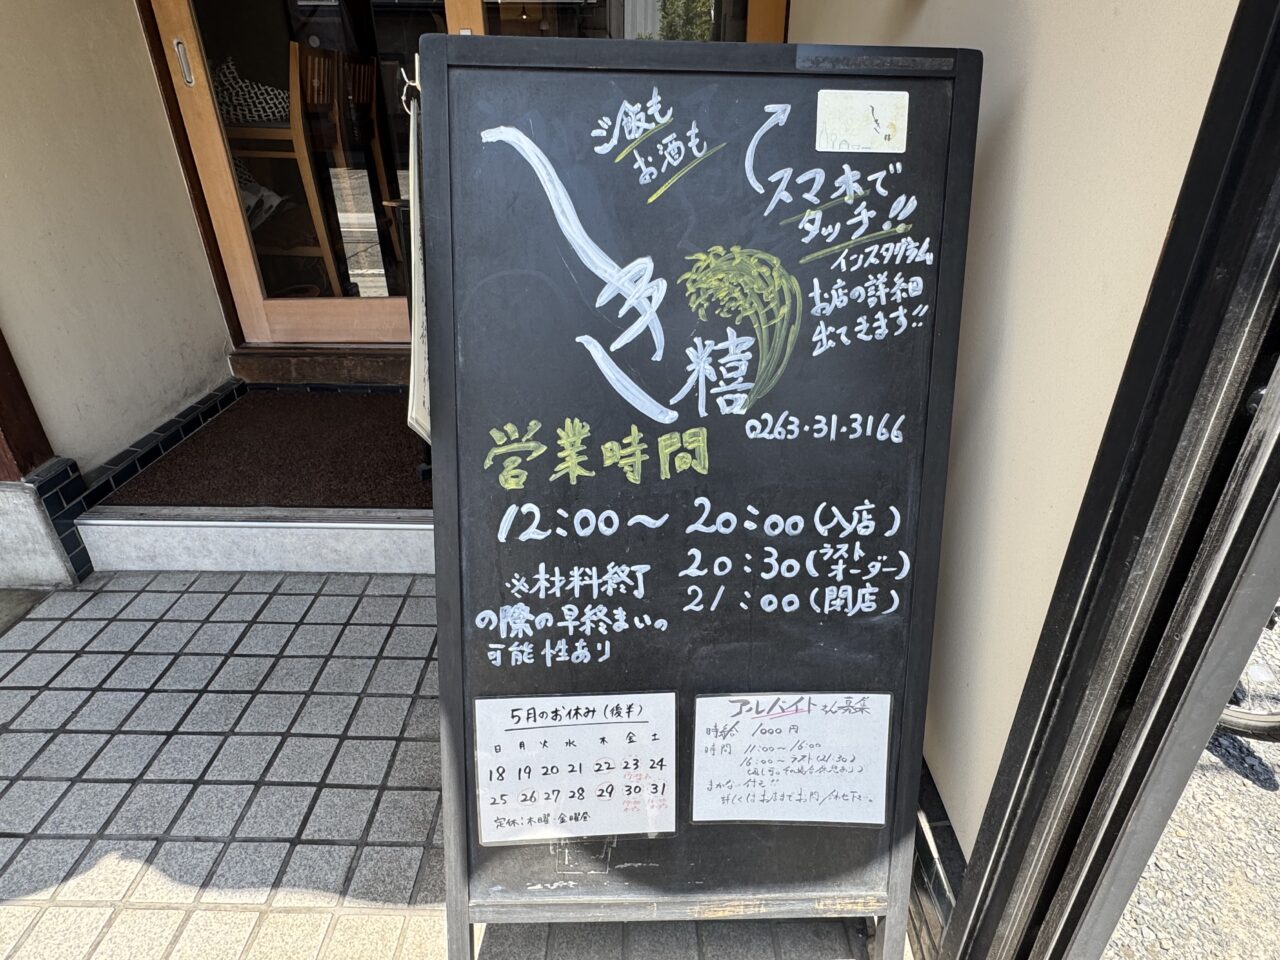 ご飯も
お酒も
しき
糦
スマホで
タッチ!!
インスタグラム
お店の詳細
出てきます!!
0263・31・3166
営業時間
12:00〜 20:00(入店)
20:30(ラストオーダー)
21:00(閉店)
※材料終了
の際の早終まい。
可能性あり
5月のお休み(後半)
日 月 火 水 木 金 土
18 19 20 21 22 23 24
25 26 27 28 29 30 31
定休:木曜・金曜昼
アルバイトさん募集
時給 1000円
時間 11:00〜16:00
16:00〜ラスト(21:30)
まかない付き!!
詳しくはお店までお問合わせ下さい。